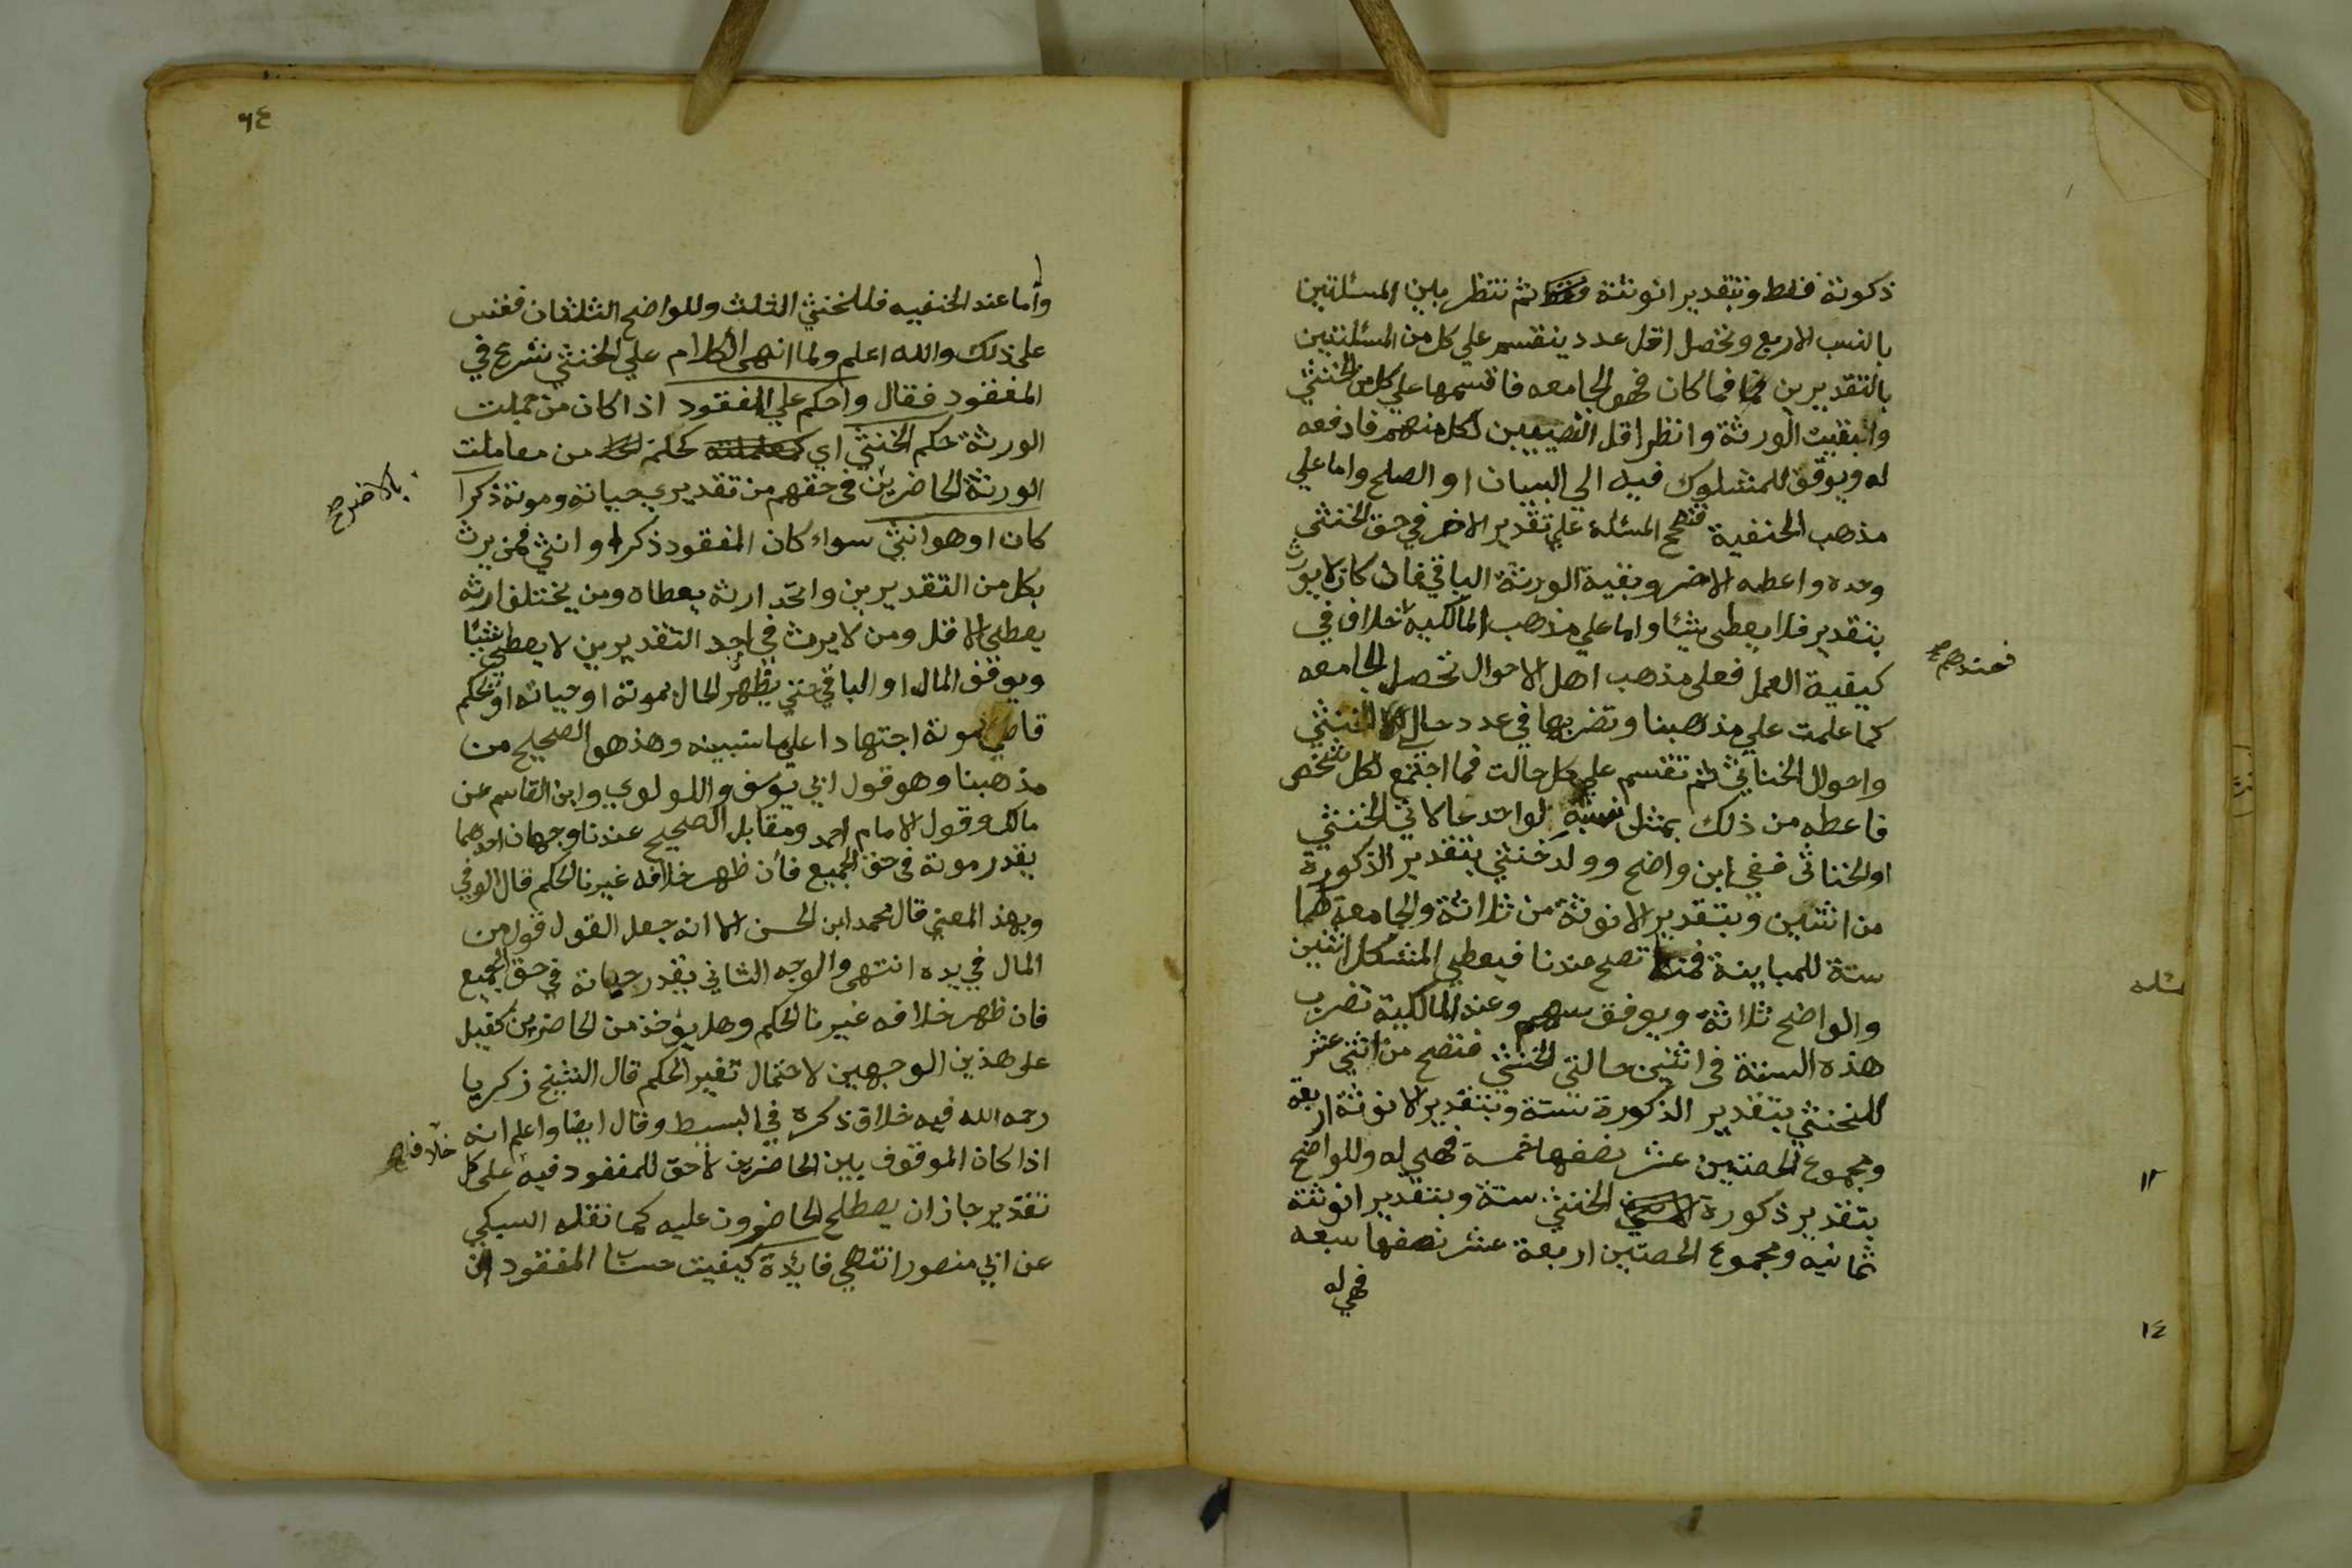 ذكورته فقط وبتقدير انوثته ثم تنظر بين المسئلتين
بالنسب الاربع وتحصل اقل عدد ينقسم على كل من المسئلتين
بالتقديرين فما كان فهو الجامعه فاقسمها علي كل من الخنثي
وابقيت الورثة وانظر اقل النصيبين لكل منهم فادفعه
له ويوقف للمشكوك فيه الي البيان او الصلح واما علي
مذهب الحنفية فتصح المسئله علي تقدير الاضر في حق الخنثى
وحده واعطه الاضر وبقية الورثة الباقي فان كان لا يورث
بتقدير فلا يعطى شيئا واما علي مذهب المالكية خلاف في
فعندهم صح
كيفية العمل فعلى مذهب اهل الاحوال تحصل الجامعه
كما علمت علي مذهبنا وتضربها في عدد حال الخنثي
واحوال الخناثي ثم تقسم علي كل حالت فما اجتمع لكل شخص
فاعطه من ذلك بمثل نسبة لواحد حالاتي الخنثي
او الخناثى ففي ابن واضح وولد خنثي بتقدير الذكورة
من اثنين وبتقدير الانوثة من ثلاثة والجامعة لهما
ستة للمباينة تصح عندنا فيعطي المشكل اثنين
مسئله
والواضح ثلاثة ويوقف سهم وعند المالكية تضرب
هذه الستة فى اثنين حالتي الخنثي فتصح من اثني عشر
للخنثي بتقدير الذكورة ستة وبتقدير الانوثة اربعة
ومجموع الحصتين عشر نصفها خمسة فهي له وللواضح
١٢
بتقدير ذكورة الخنثي ستة وبتقدير انوثته
ثمانيه ومجموع الحصتين اربعة عشر نصفها سبعه
١٤
فهي له
٦٤
وأما عند الحنفيه فللخنثي الثلث وللواضح الثلثان فقس
على ذلك والله اعلم ولما انهى الكلام علي الخنثي شرع في
المفقود فقال واحكم علي المفقود اذا كان من جملت
الورثة حكم الخنثي اي من معاملت
بالاضر صح
الورثة الحاضرين فى حقهم من تقديري حياته وموته ذكرا
كان او هو انثي سواء كان المفقود ذكرا او انثي فمن يرث
بكل من التقديرين واتحد ارثه يعطاه ومن يختلف ارثه
يعطي الاقل ومن لا يرث في احد التقديرين لا يعطي شيئا
ويوقف المال او الباقي حتي يظهر الحال بموته او حياته او يحكم
قاضي بموته اجتهادا علي ما سنبينه وهذ هو الصحيح من
مذهبنا وهو قول ابي يوسف واللولوي وابن القاسم عن
مالك وقول الامام احمد ومقابل الصحيح عندنا وجهان احدهما
يقدر موته فى حق الجميع فأن ظهر خلافه غيرنا الحكم قال الوفي
وبهذ المعني قال محمد ابن الحسن الا انه جعل القول قول من
المال في يده انتهى والوجه الثاني يقدر حياته في حق الجميع
فان ظهر خلافه غيرنا الحكم وهل يؤخذ من الحاضرين كفيل
على هذين الوجهين لاحتمال تغير الحكم قال الشيخ زكريا
رحمه الله فيه خلاف ذكره في البسيط وقال ايضا واعلم انه
اذا كان الموقوف بين الحاضرين لا حق للمفقود فيه على كل
تقدير جاز ان يصطلح الحاضرون عليه كما نقله السبكي
عن ابي منصور انتهي فايدة كيفيت حساب المفقود